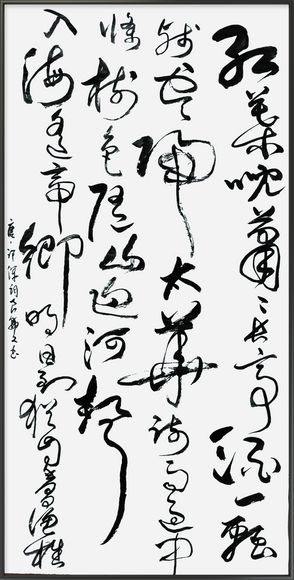 红葉晚蕭〻長亭酒一瓢
残雲歸太華疏雨過中
條樹色随山迥河聲
入海遥帝鄉明日到猶自夢漁樵
唐許渾